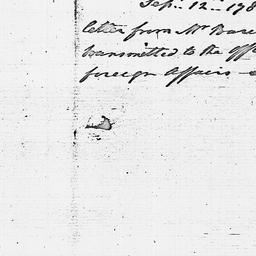 Sep. 12 178
letter from Mr Barc
transmitted to the Offi
foreign Affairs